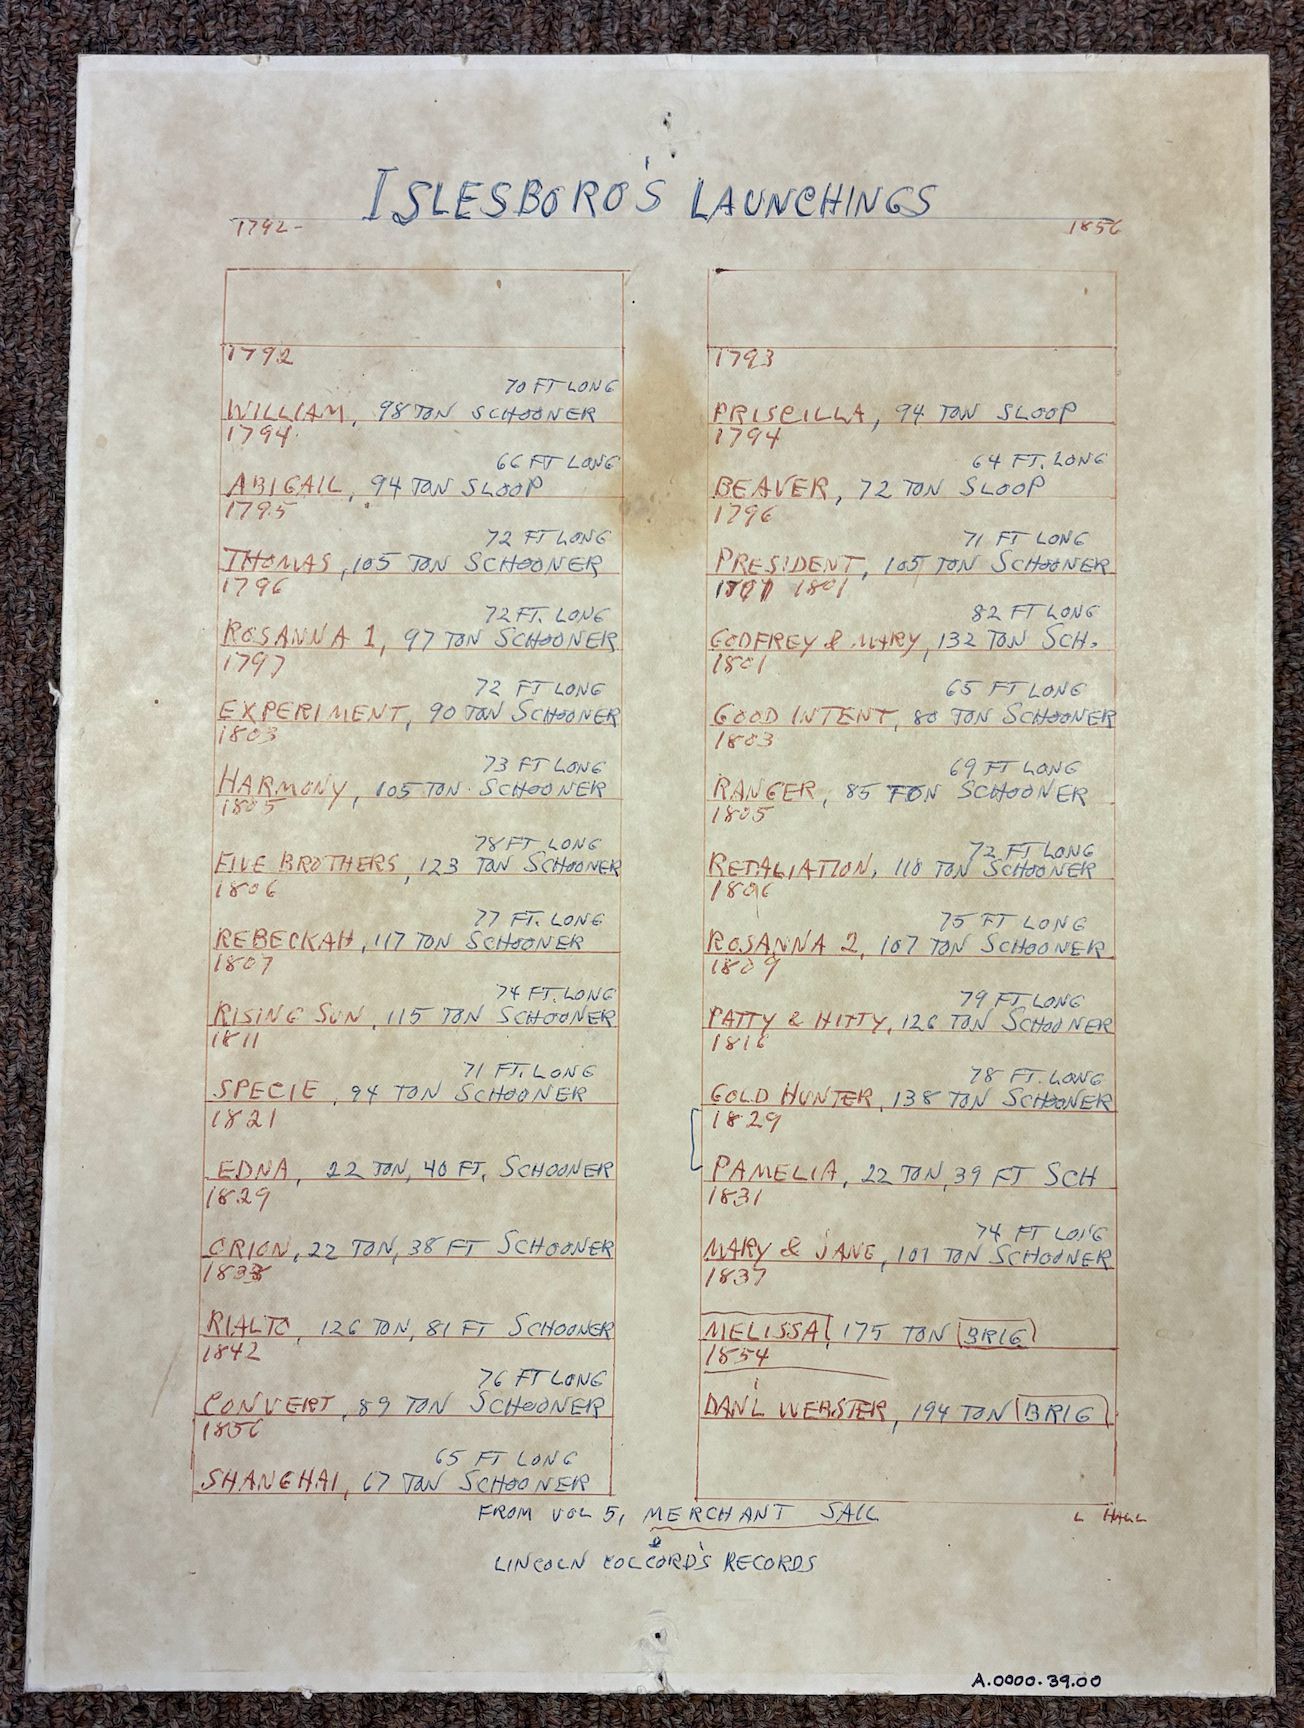 ISLESBORO'S LAUNCHINGS
1792-
1856
1792
70 FT LONG
WILLIAM, 98 TON SCHOONER
1794
66 FT LONG
ABIGAIL, 94 TON SLOOP
1795
72 FT LONG
THOMAS, 105 TON SCHOONER
1796
72 FT. LONG
ROSANNA 1, 97 TON SCHOONER
1797
72 FT LONG
EXPERIMENT, 90 TON SCHOONER
1803
73 FT LONG
HARMONY, 105 TON SCHOONER
1805
78 FT LONG
FIVE BROTHERS, 123 TON SCHOONER
1806
77 FT. LONG
REBECKAH, 117 TON SCHOONER
1807
74 FT. LONG
RISING SUN, 115 TON SCHOONER
1811
71 FT. LONG
SPECIE, 94 TON SCHOONER
1821
EDNA, 22 TON, 40 FT. SCHOONER
1829
ORION, 22 TON, 38 FT SCHOONER
RIALTO, 126 TON, 81 FT SCHOONER
1842
76 FT LONG
CONVERT, 89 TON SCHOONER
1856
65 FT LONG
SHANGHAI, 67 TON SCHOONER
1793
PRISCILLA, 94 TON SLOOP
1794
64 FT. LONG
BEAVER, 72 TON SLOOP
1796
71 FT LONG
PRESIDENT, 105 TON SCHOONER
1801
82 FT LONG
GODFREY & MARY, 132 TON SCH.
1801
65 FT LONG
GOOD INTENT, 80 TON SCHOONER
1803
69 FT LONG
RANGER, 85 TON SCHOONER
1805
72 FT LONG
RETALIATION, 110 TON SCHOONER
1806
75 FT LONG
ROSANNA 2, 107 TON SCHOONER
1809
79 FT. LONG
PATTY & HITTY, 126 TON SCHOONER
1816
78 FT. LONG
GOLD HUNTER, 138 TON SCHOONER
1829
PAMELIA, 22 TON, 39 FT SCH
1831
74 FT LONG
MARY & JANE, 101 TON SCHOONER
1837
MELISSA, 175 TON BRIG
1854
DAN'L WEBSTER, 194 TON BRIG
FROM VOL 5, MERCHANT SAIL
L HALL
&
LINCOLN COLCORD'S RECORDS
A.0000.39.00